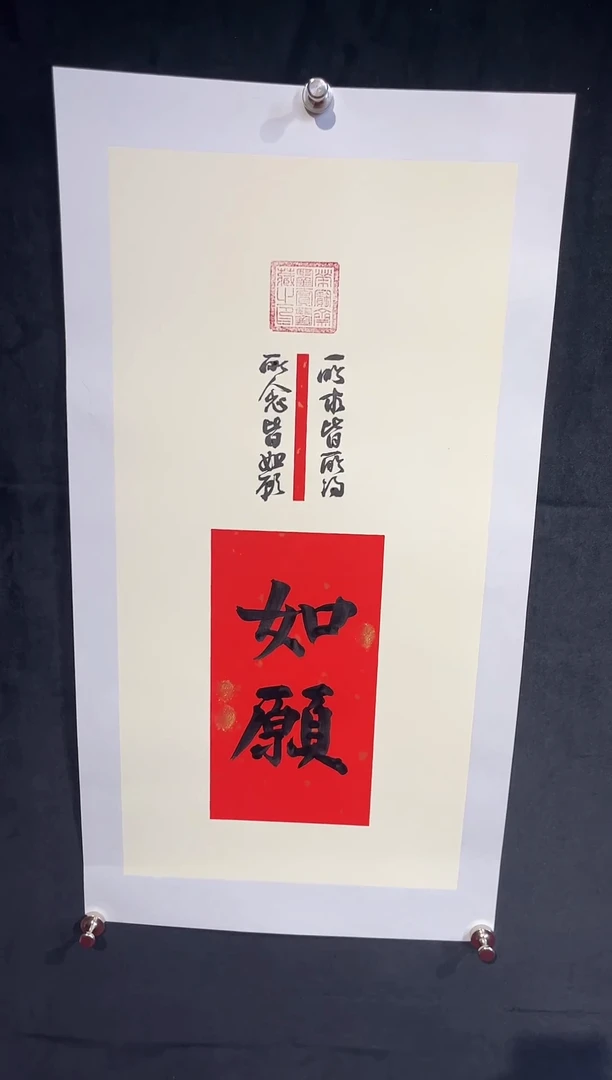 所求皆所得
所念皆如願
如願